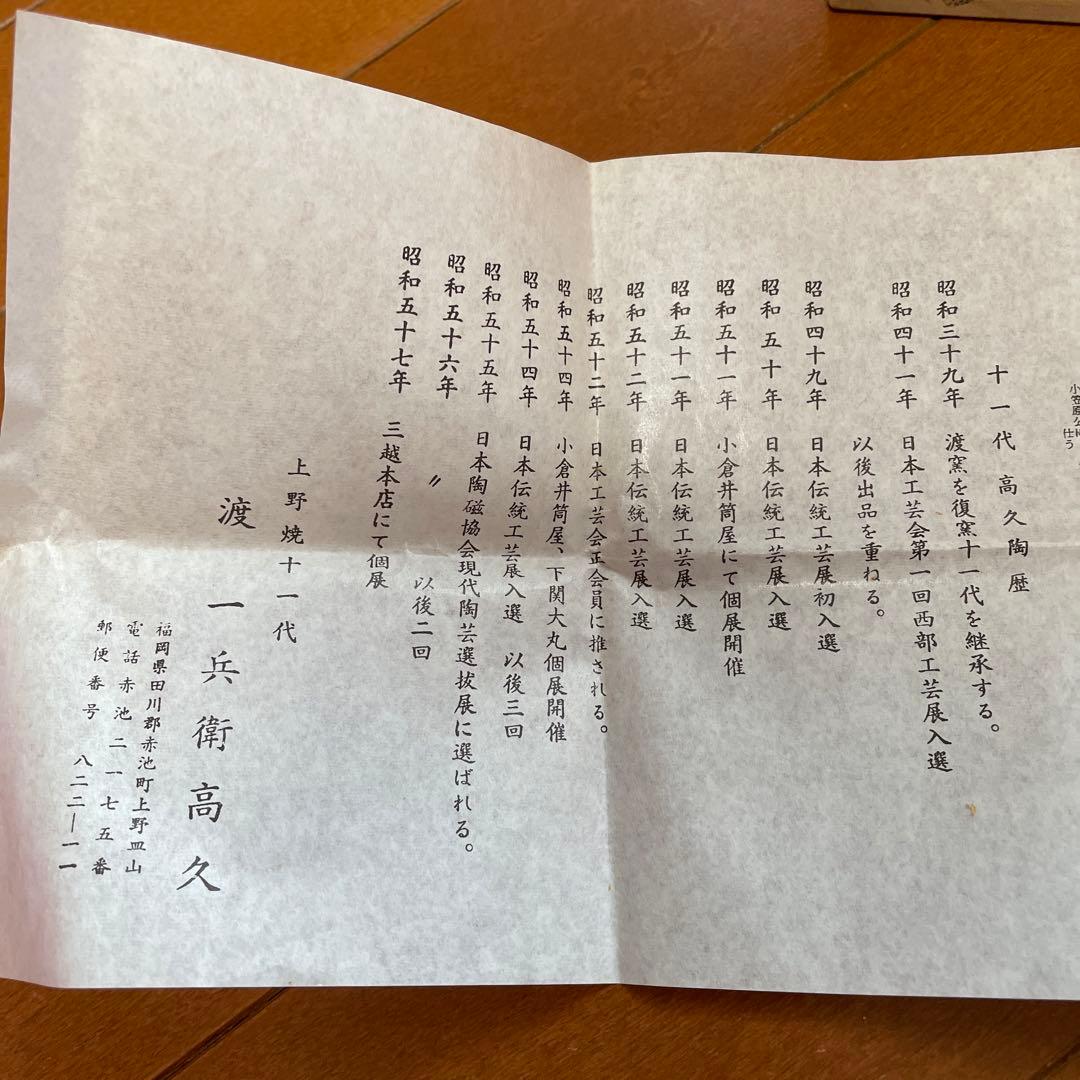 小笠原公
仕う
十一代 高久陶歴
昭和三十九年 渡窯を復窯十一代を継承する。
昭和四十一年 日本工芸会第一回西部工芸展入選
以後出品を重ねる。
昭和四十九年 日本伝統工芸展初入選
昭和五十年 日本伝統工芸展入選
昭和五十一年 小倉井筒屋にて個展開催
昭和五十一年 日本伝統工芸展入選
昭和五十二年 日本伝統工芸展入選
昭和五十二年 日本工芸会正会員に推される。
昭和五十四年 小倉井筒屋、下関大丸個展開催
昭和五十四年 日本伝統工芸展入選 以後三回
昭和五十五年 日本陶磁協会現代陶芸選抜展に選ばれる。
昭和五十六年 〃 以後二回
昭和五十七年 三越本店にて個展
上野焼十一代
渡 一兵衛高久
福岡県田川郡赤池町上野皿山
電話赤池二一七五番
郵便番号 八二二―一一